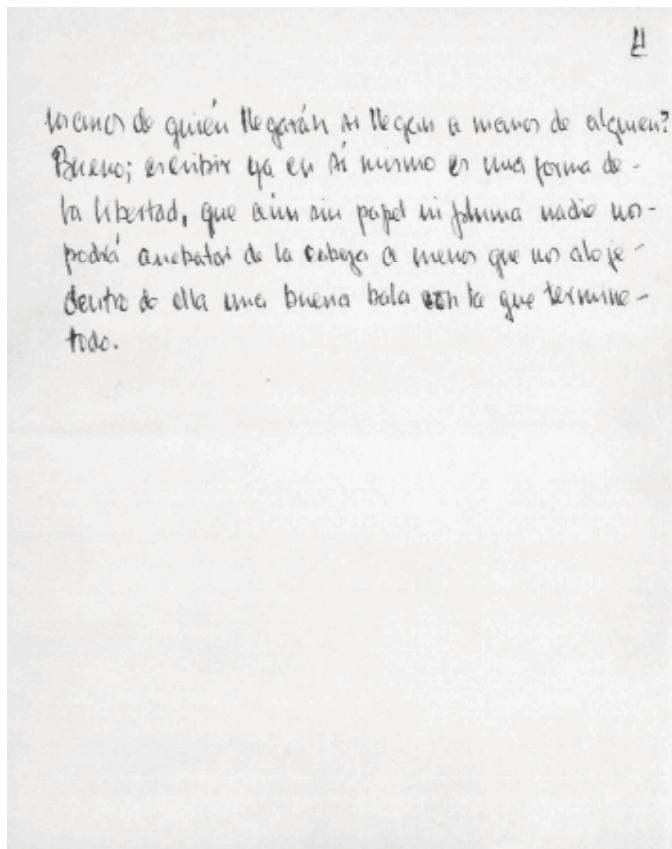 4
manos de quién llegarán si llegan a manos de alguien?
Bueno; escribir ya en sí mismo es una forma de -
la libertad, que aún sin papel ni pluma nadie nos -
podrá arrebatar de la cabeza a menos que nos aloje -
dentro de ella una buena bala con la que termine -
todo.